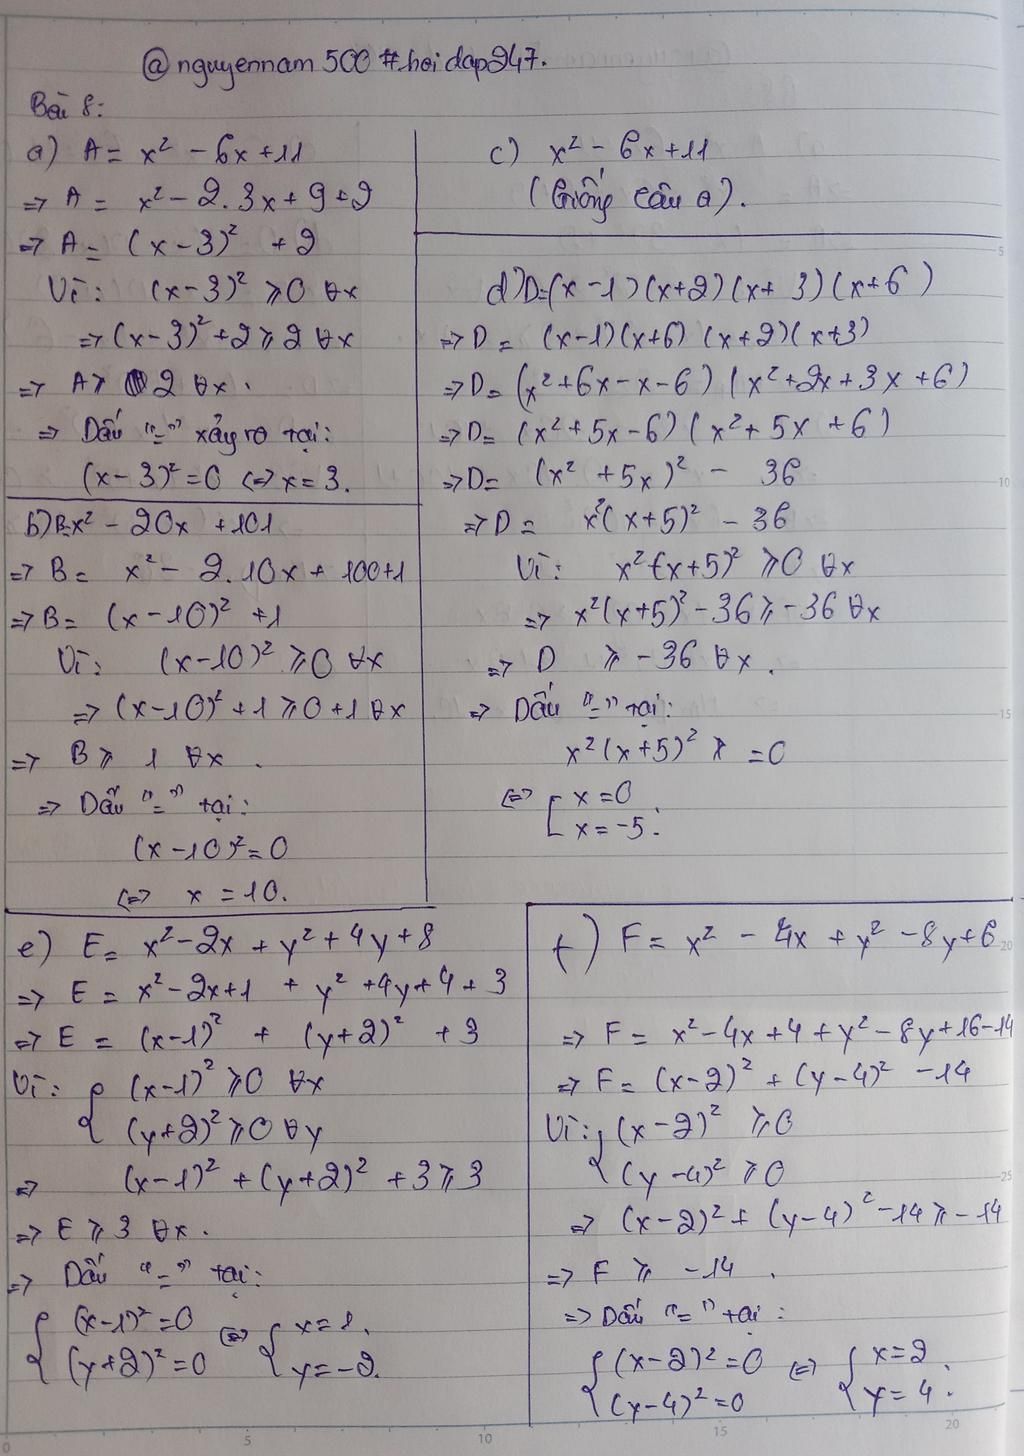 @nguyennam 500 #hoidap247.
Bài 8:
a) A = x² - 6x + 11
=> A = x² - 2.3x + 9 + 2
=> A = (x - 3)² + 2
Vì: (x-3)² ⩾0 ∀x
=> (x-3)² + 2 ⩾ 2 ∀x
=> A ⩾ 2 ∀x.
=> Dấu "=" xảy ra tại:
(x - 3)² = 0 <=> x = 3.
b) B=x² - 20x + 101
=> B = x² - 2.10x + 100+1
=> B = (x - 10)² + 1
Vì: (x-10)² ⩾0 ∀x
=> (x-10)² + 1 ⩾0 +1 ∀x
=> B ⩾ 1 ∀x.
=> Dấu "=" tại:
(x - 10)² = 0
<=> x = 10.
c) x² - 6x + 11
(Giống câu a).
d) D=(x - 1)(x+2)(x+ 3)(x+6)
=> D = (x-1)(x+6)(x+2)(x+3)
=> D = (x²+6x-x-6)(x²+2x+3x+6)
=> D = (x² + 5x - 6)(x² + 5x + 6)
=> D = (x² + 5x)² - 36
=> D = x²(x+5)² - 36
Vì: x²(x+5)² ⩾0 ∀x
=> x²(x+5)² - 36 ⩾ -36 ∀x
=> D ⩾ -36 ∀x.
=> Dấu "=" tại:
x²(x+5)² = 0
<=> [ x = 0
x = -5.
e) E = x² - 2x + y² + 4y + 8
=> E = x² - 2x + 1 + y² + 4y + 4 + 3
=> E = (x-1)² + (y+2)² + 3
Vì: { (x-1)² ⩾0 ∀x
(y+2)² ⩾0 ∀y
=> (x-1)² + (y+2)² + 3 ⩾ 3
=> E ⩾ 3 ∀x.
=> Dấu "=" tại:
{ (x-1)² = 0 <=> { x = 1.
(y+2)² = 0 y = -2.
f) F = x² - 4x + y² - 8y + 6
=> F = x² - 4x + 4 + y² - 8y + 16 - 14
=> F = (x-2)² + (y-4)² - 14
Vì: { (x-2)² ⩾0
(y-4)² ⩾0
=> (x-2)² + (y-4)² - 14 ⩾ -14
=> F ⩾ -14.
=> Dấu "=" tại:
{ (x-2)² = 0 <=> { x = 2
(y-4)² = 0 y = 4.
5
10
15
20
25
0 5 10 15 20